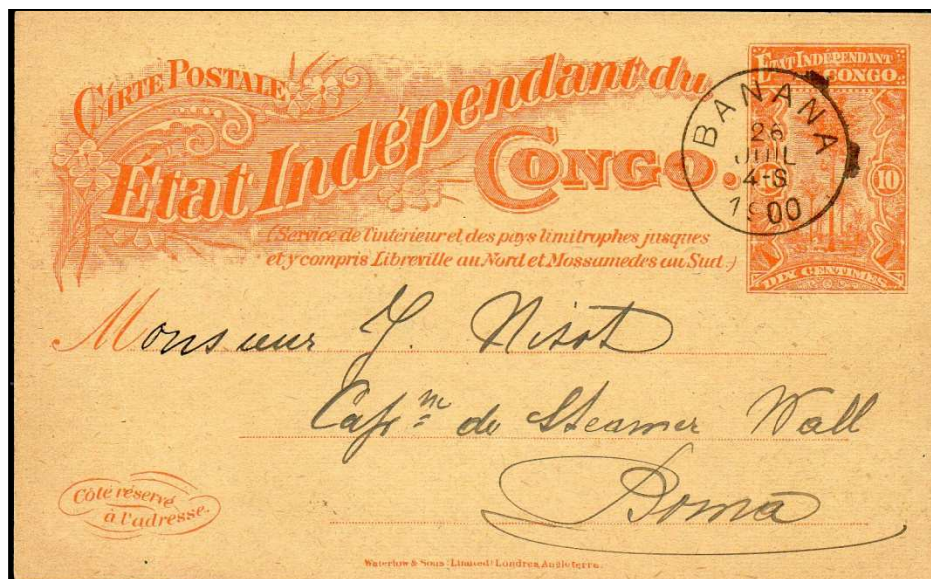 CARTE POSTALE
Etat Indépendant du
CONGO.
(Service de l'intérieur et des pays limitrophes jusques
et y compris Libreville au Nord et Mossamedes au Sud.)
ETAT INDÉPENDANT
DU CONGO.
10
10
DIX CENTIMES
BANANA
26
JUIL
4-S
1900
Monsieur J. Nisot
Capne de Steamer Wall
Boma
Côté réservé
à l'adresse.
Waterlow & Sons Limited Londres, Angleterre.